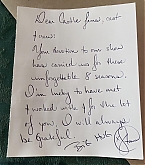 Dear Castle fans, cast
& crew:
Your devotion to our show
has carried us for these
unforgettable 8 seasons.
I'm lucky to have met
& worked with & for the lot
of you. I will always
be grateful.